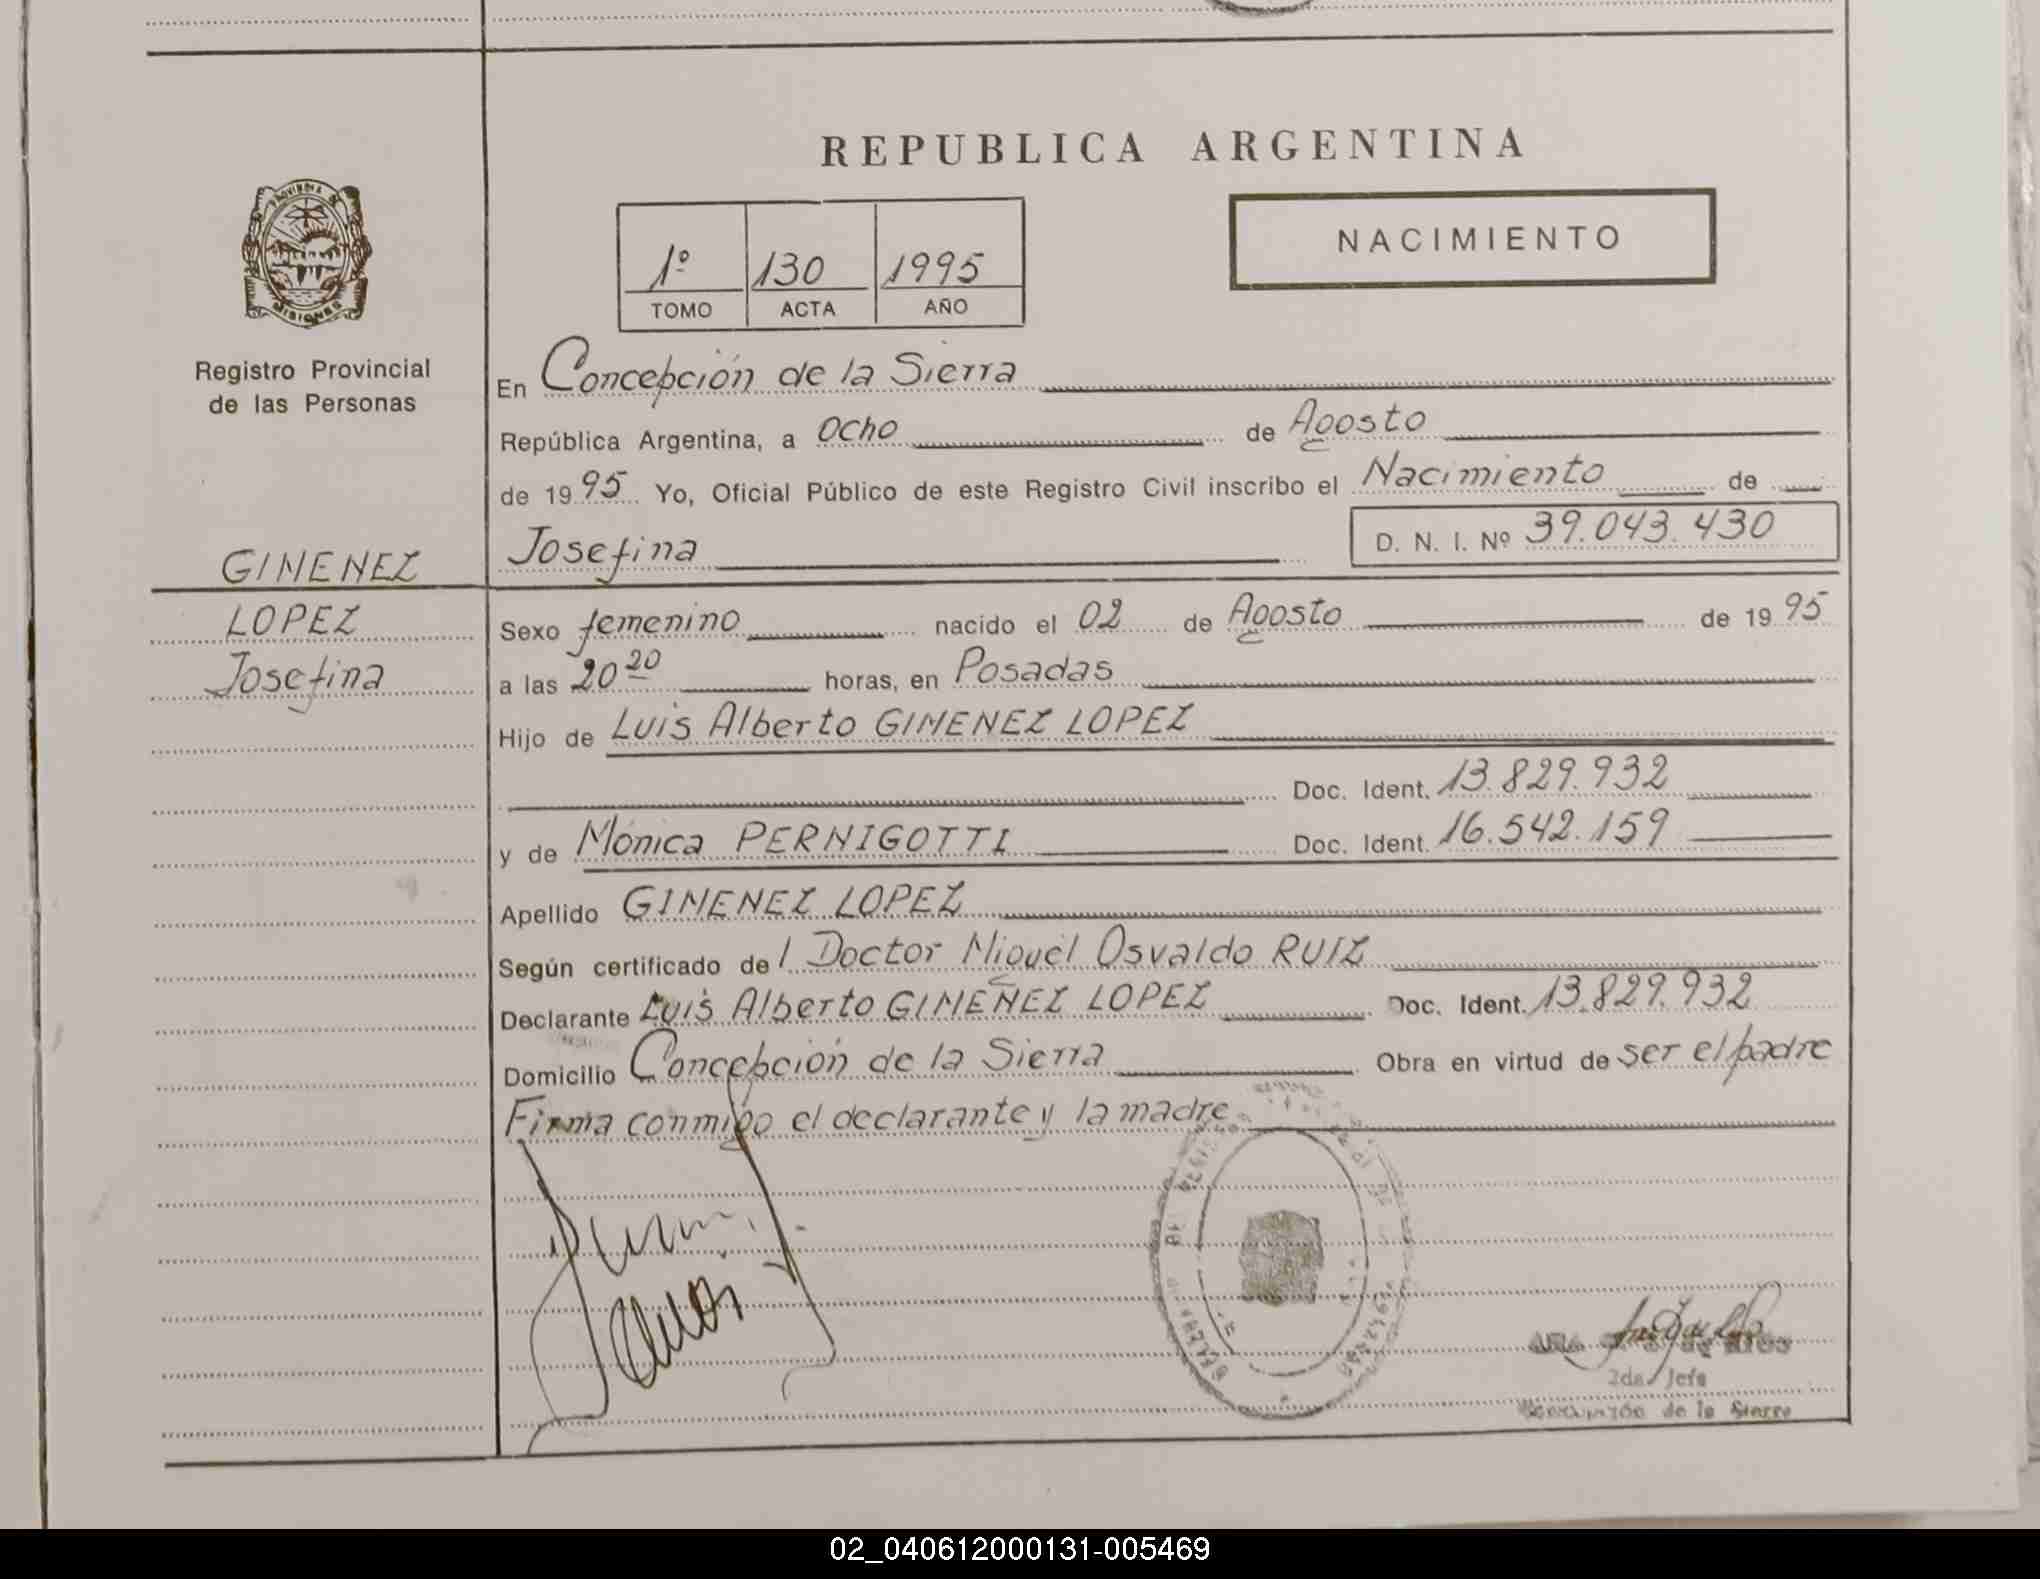 REPUBLICA ARGENTINA
PROVINCIA DE MISIONES
1º 130 1995
TOMO ACTA AÑO
NACIMIENTO
Registro Provincial
de las Personas
GIMENEZ
LOPEZ
Josefina
En Concepción de la Sierra
República Argentina, a ocho de Agosto
de 1995 Yo, Oficial Público de este Registro Civil inscribo el Nacimiento de
Josefina D. N. I. Nº 39.043.430
Sexo femenino nacido el 02 de Agosto de 1995
a las 20 20 horas, en Posadas
Hijo de Luis Alberto GIMENEZ LOPEZ
Doc. Ident. 13.829.932
y de Mónica PERNIGOTTI Doc. Ident. 16.542.159
Apellido GIMENEZ LOPEZ
Según certificado del Doctor Miguel Osvaldo RUIZ
Declarante Luis Alberto GIMENEZ LOPEZ Doc. Ident. 13.829.932
Domicilio Concepción de la Sierra Obra en virtud de ser el padre
Firma conmigo el declarante y la madre
2da Jefe
Concepción de la Sierra
02_040612000131-005469